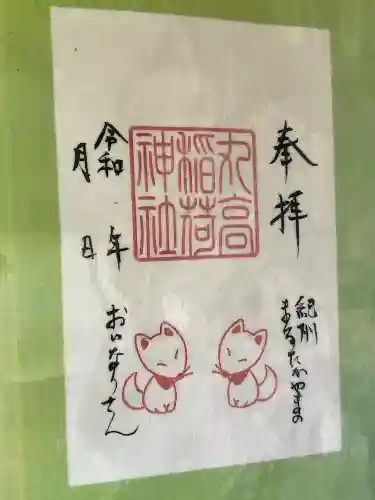 奉拝
紀州
まるたかやまの
丸高
稲荷
神社
令和　年
月　日
おいなりさん